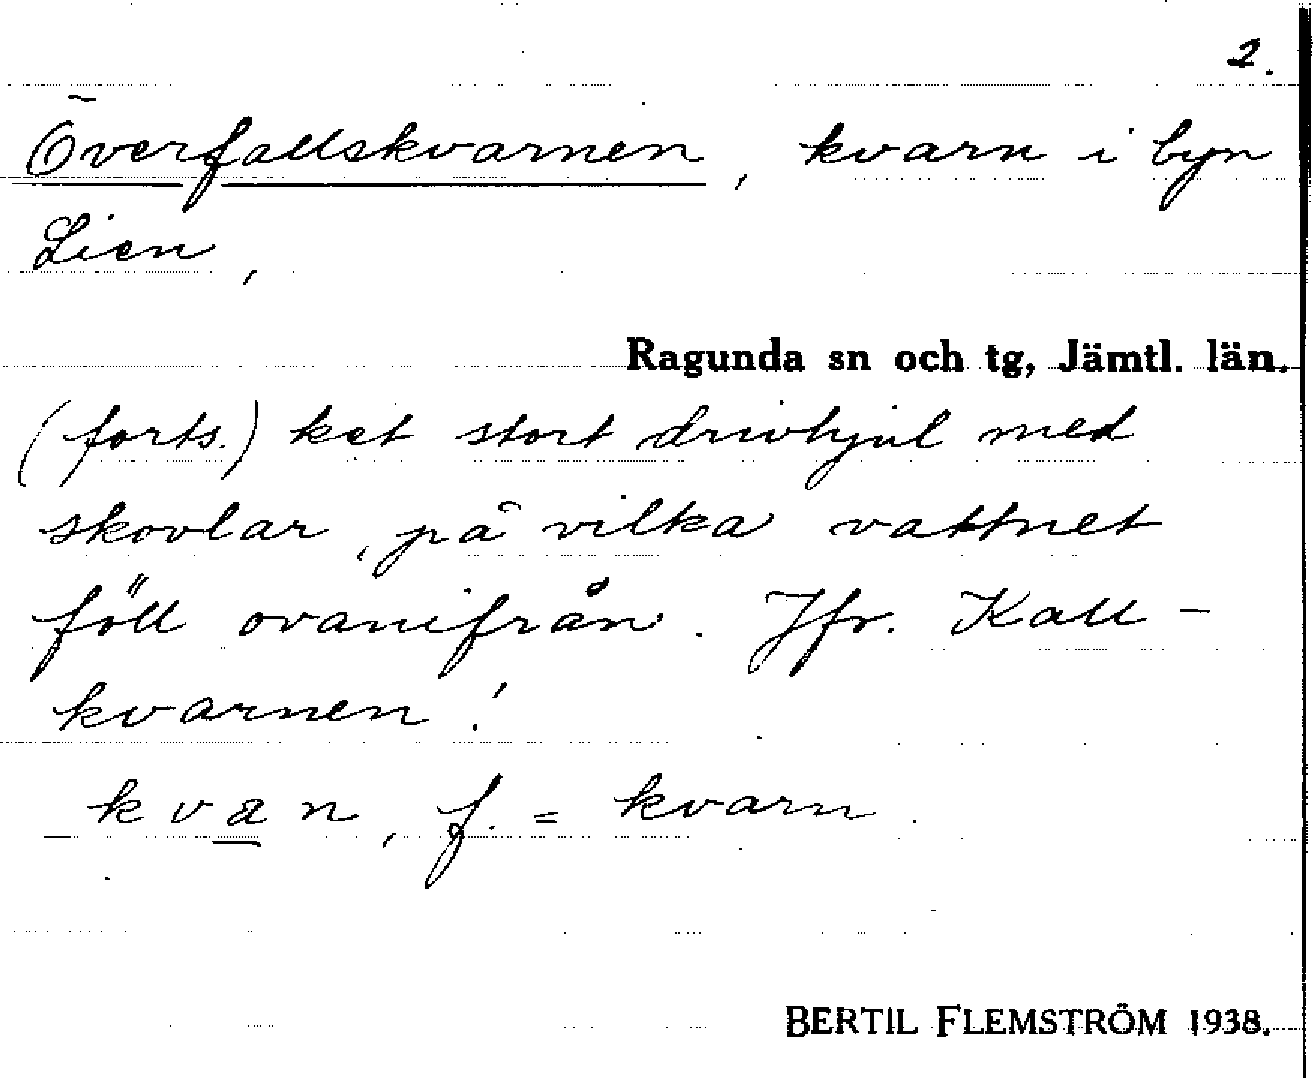 2.
Överfallskvarnen, kvarn i byn
Lien,
Ragunda sn och tg, Jämtl. län.
(forts.) ket stort drivhjul med
skovlar, på vilka vattnet
föll ovanifrån. Jfr. Kall-
kvarnen!
kvan, f. = kvarn.
BERTIL FLEMSTRÖM 1938.